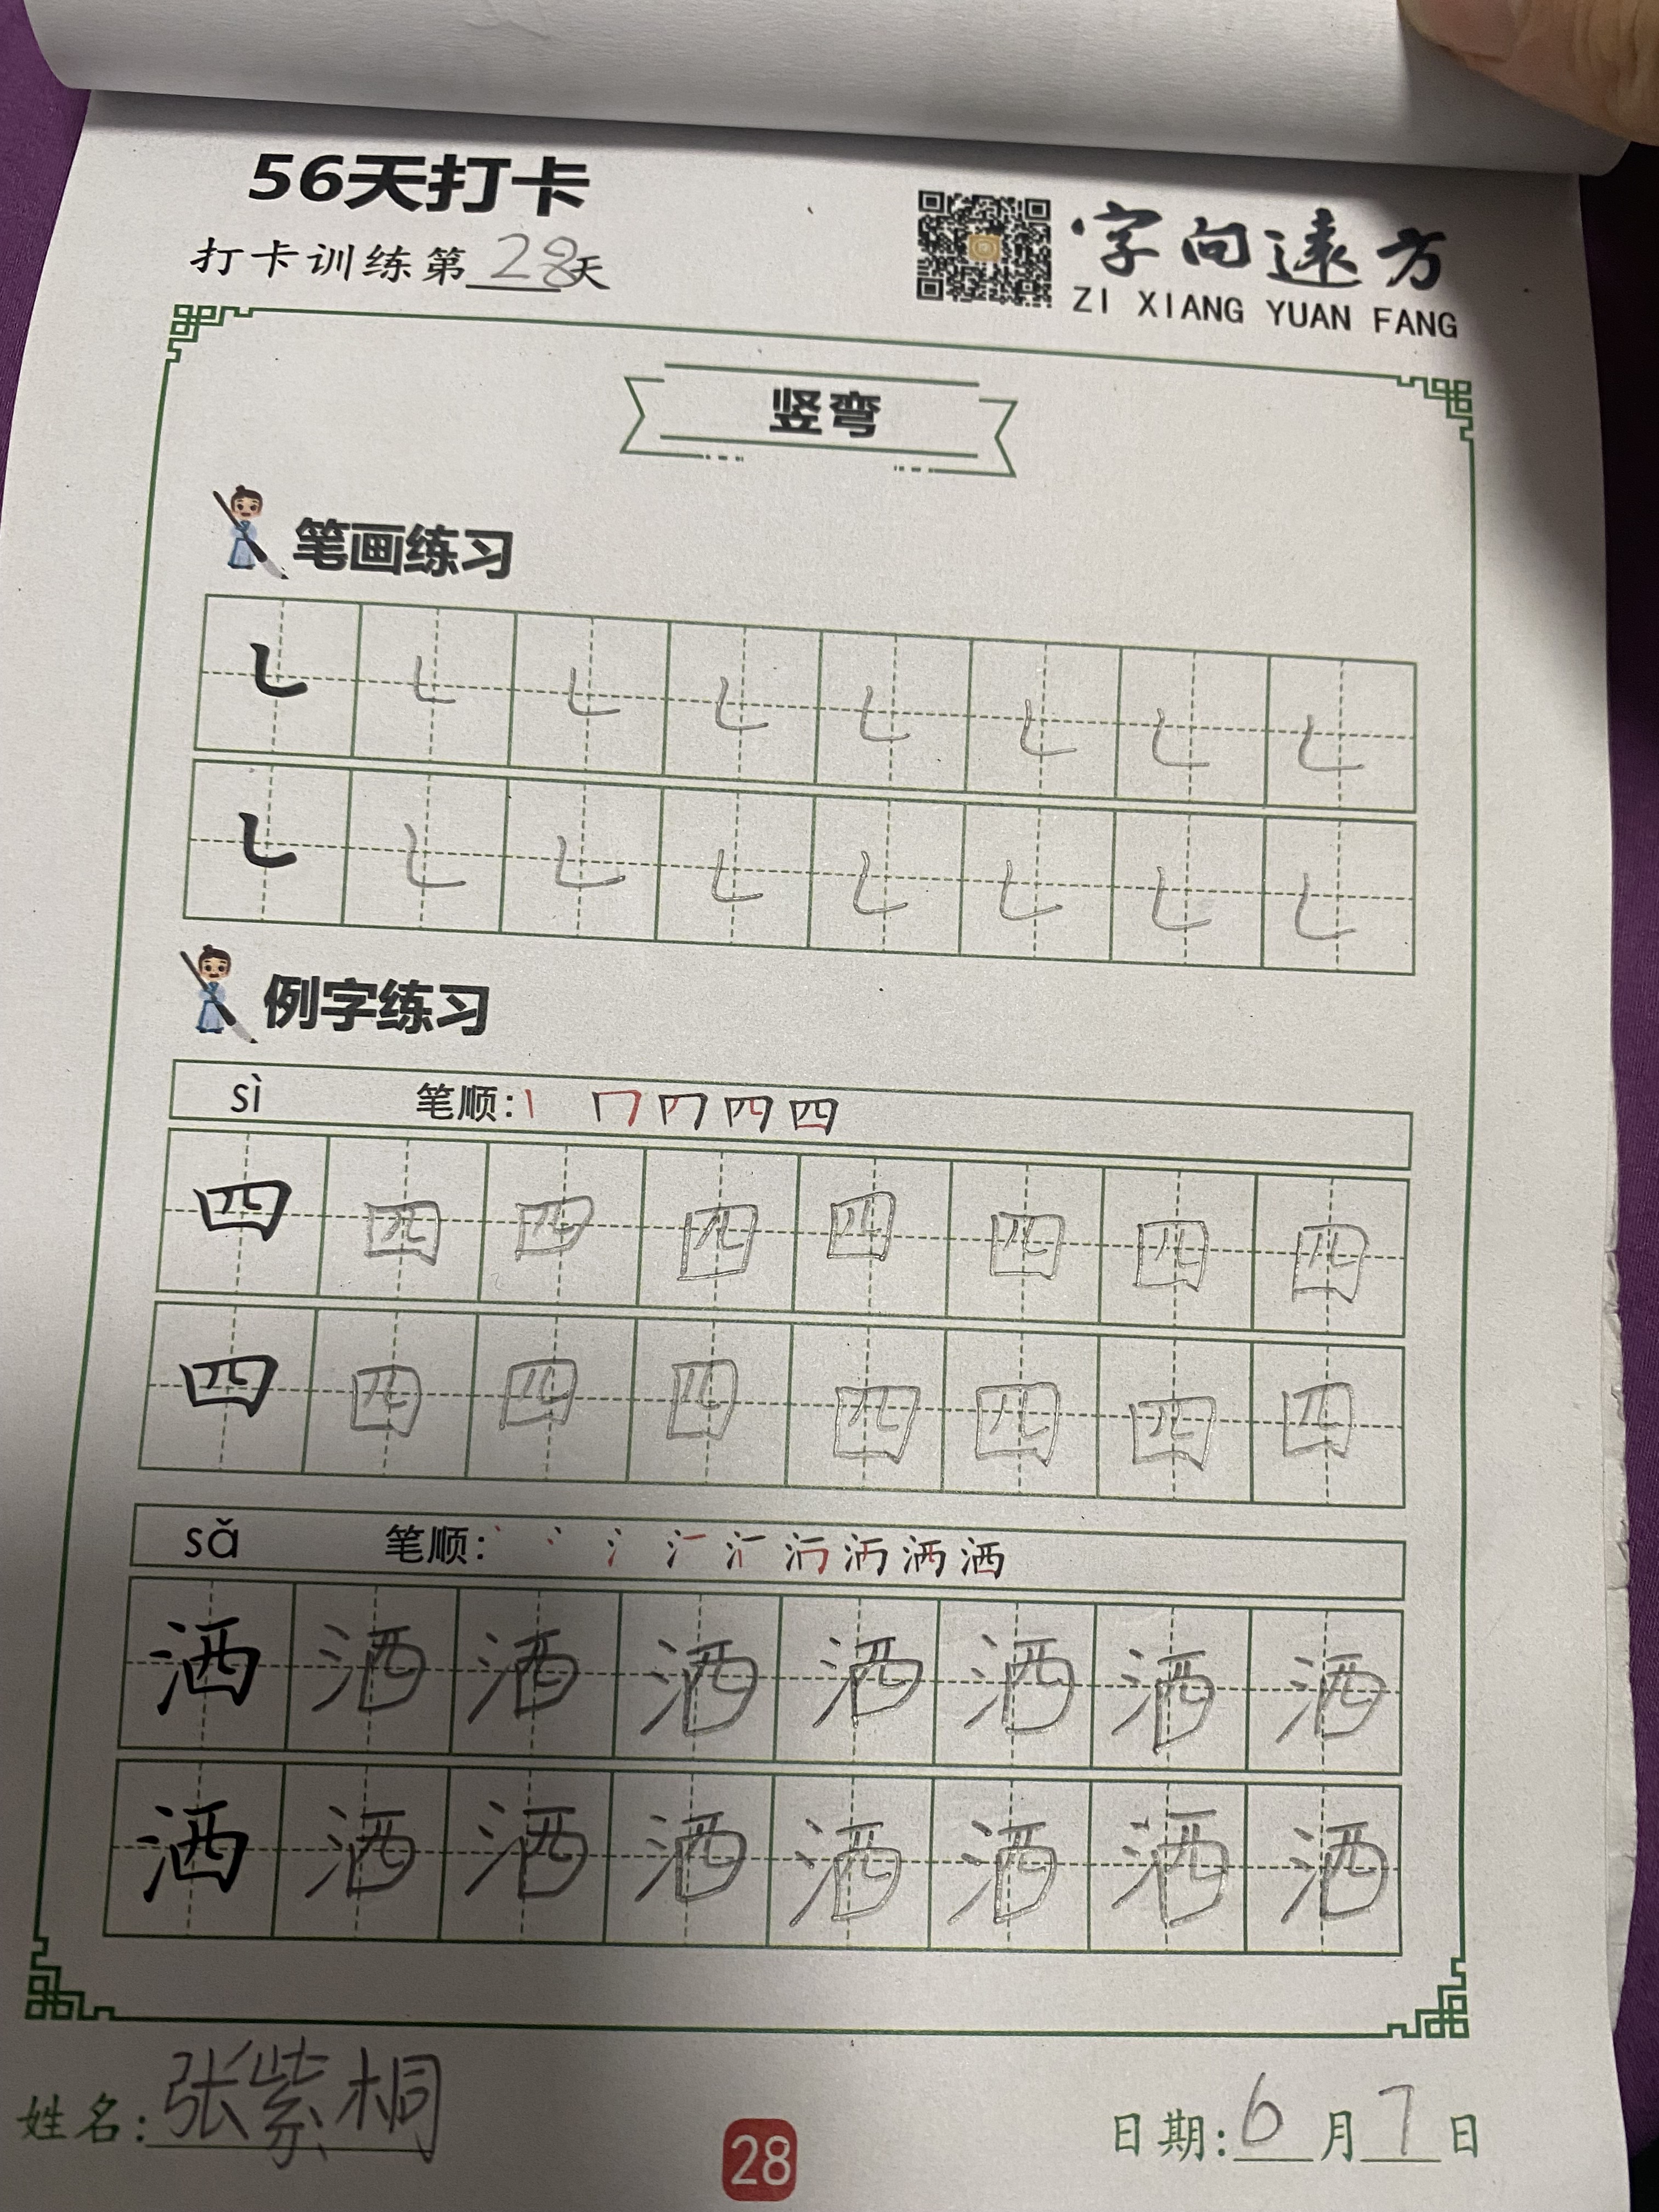 56天打卡
打卡训练第28天
字向远方
ZI XIANG YUAN FANG
竖弯
笔画练习
㇄ ㇄ ㇄ ㇄ ㇄ ㇄ ㇄ ㇄
㇄ ㇄ ㇄ ㇄ ㇄ ㇄ ㇄ ㇄
例字练习
sì 笔顺: 丨 冂 四
四 四 四 四 四 四 四 四
四 四 四 四 四 四 四 四
sǎ 笔顺: 丶 冫 氵 洒
洒 洒 洒 洒 洒 洒 洒 洒
洒 洒 洒 洒 洒 洒 洒 洒
姓名: 张紫桐
28
日期: 6月7日